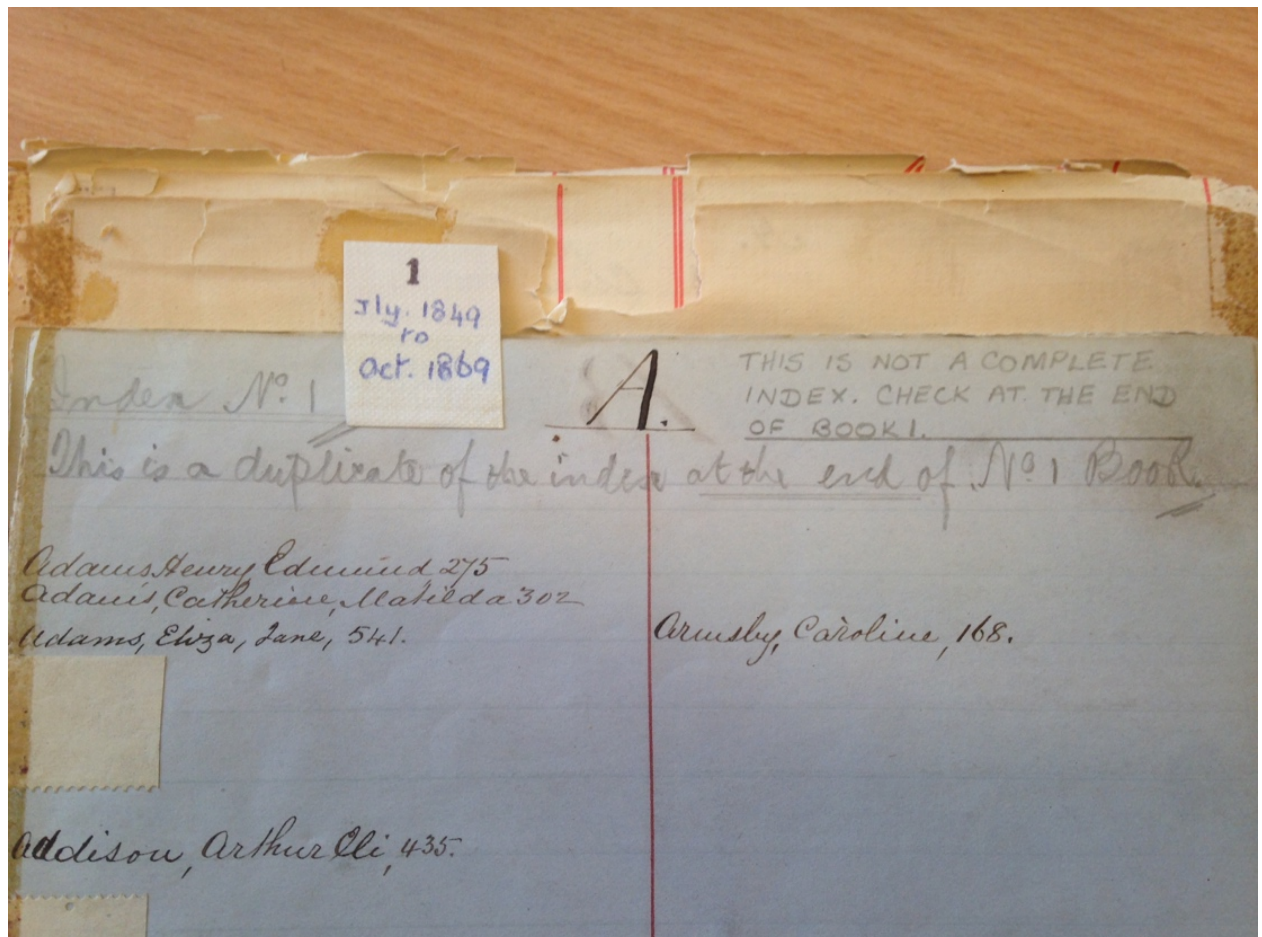 1
Jly. 1849
to
Oct. 1869
Index No. 1
A.
THIS IS NOT A COMPLETE
INDEX. CHECK AT THE END
OF BOOK 1.
This is a duplicate of the index at the end of No 1 Book.
Adams Henry Edmund 275
Adams, Catherine, Matilda 302
Adams, Eliza, Jane, 541.
Armsby, Caroline, 168.
Addison, Arthur Eli, 435.